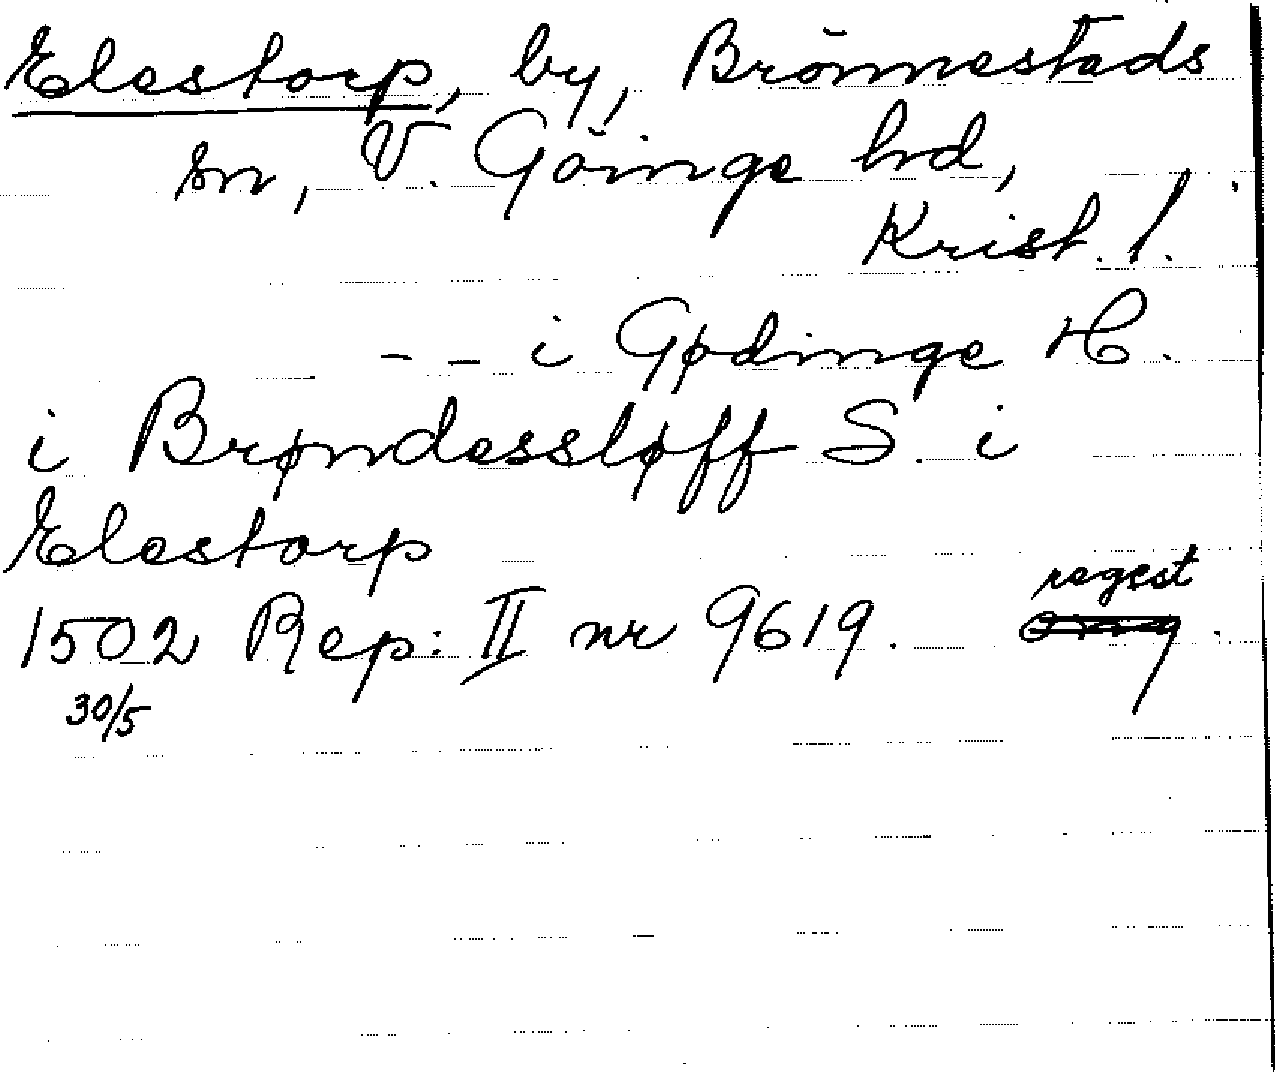 Elestorp, by, Brönnestads
sn, V. Göinge hd,
Krist. l.
_ _ i Gødinge H.
i Brøndessløff S. i
Elestorp
regest
1502 Rep: II nr 9619.
30/5